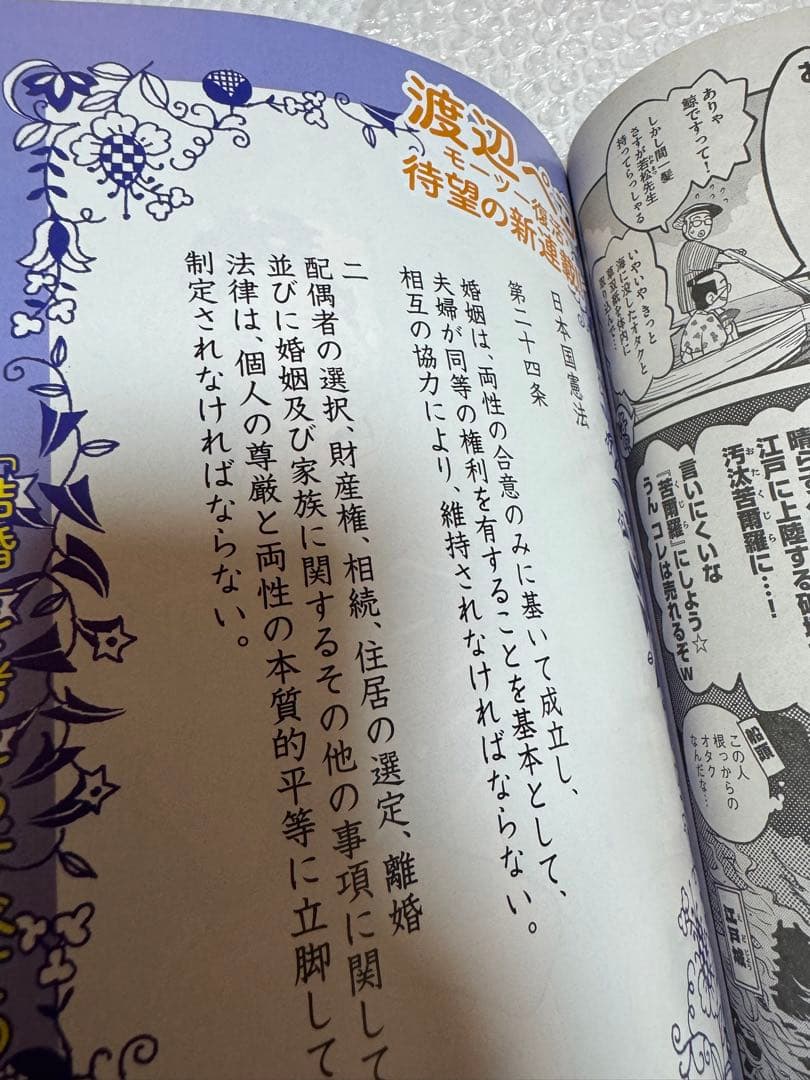 渡辺ペ
モーツー復活
待望の新連載
日本国憲法
第二十四条
婚姻は、両性の合意のみに基いて成立し、
夫婦が同等の権利を有することを基本として、
相互の協力により、維持されなければならない。
二
配偶者の選択、財産権、相続、住居の選定、離婚
並びに婚姻及び家族に関するその他の事項に関して
法律は、個人の尊厳と両性の本質的平等に立脚して
制定されなければならない。
ありゃ
鯨ですって!
しかし間一髪
さすが若松先生
持ってらっしゃる
いやいやきっと
海に没したオタクと
江戸に上陸する
汚汰苦爾羅に…!
おたくじら
言いにくいな
『苦爾羅』にしよう☆
くじら
うん コレは売れるぞw
船頭
この人
根っからの
オタク
なんだな…